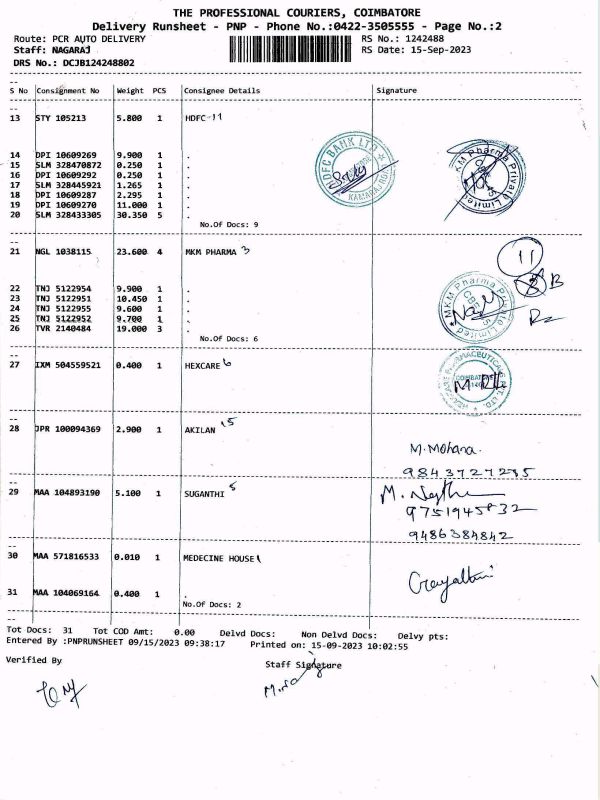 THE PROFESSIONAL COURIERS, COIMBATORE
Delivery Runsheet - PNP - Phone No.:0422-3505555 - Page No.:2
Route: PCR AUTO DELIVERY RS No.: 1242488
Staff: NAGARAJ RS Date: 15-Sep-2023
DRS No.: DCJB124248802
S No Consignment No Weight PCS Consignee Details Signature
13 STY 105213 5.800 1 HDFC-11
14 DPI 10609269 9.900 1 .
15 SLM 328470872 0.250 1 .
16 DPI 10609292 0.250 1 .
17 SLM 328445921 1.265 1 .
18 DPI 10609287 2.295 1 .
19 DPI 10609270 11.000 1 .
20 SLM 328433305 30.350 5 .
No.Of Docs: 9
HDFC BANK LTD
MKM Pharma Private Limited
21 NGL 1038115 23.600 4 MKM PHARMA 3
11
B
22 TNJ 5122954 9.900 1 .
23 TNJ 5122951 10.450 1 .
24 TNJ 5122955 9.600 1 .
25 TNJ 5122952 9.700 1 .
26 TVR 2140484 19.000 3 .
No.Of Docs: 6
MKM Pharma Private Limited
27 IXM 504559521 0.400 1 HEXCARE 6
28 JPR 100094369 2.900 1 AKILAN 15
M. Mohana.
9843727285
29 MAA 104893190 5.100 1 SUGANTHI 5
9751945832
9486384842
30 MAA 571816533 0.010 1 MEDECINE HOUSE 1
31 MAA 104069164 0.400 1 .
No.Of Docs: 2
Tot Docs: 31 Tot COD Amt: 0.00 Delvd Docs: Non Delvd Docs: Delvy pts:
Entered By :PNPRUNSHEET 09/15/2023 09:38:17 Printed on: 15-09-2023 10:02:55
Verified By Staff Signature